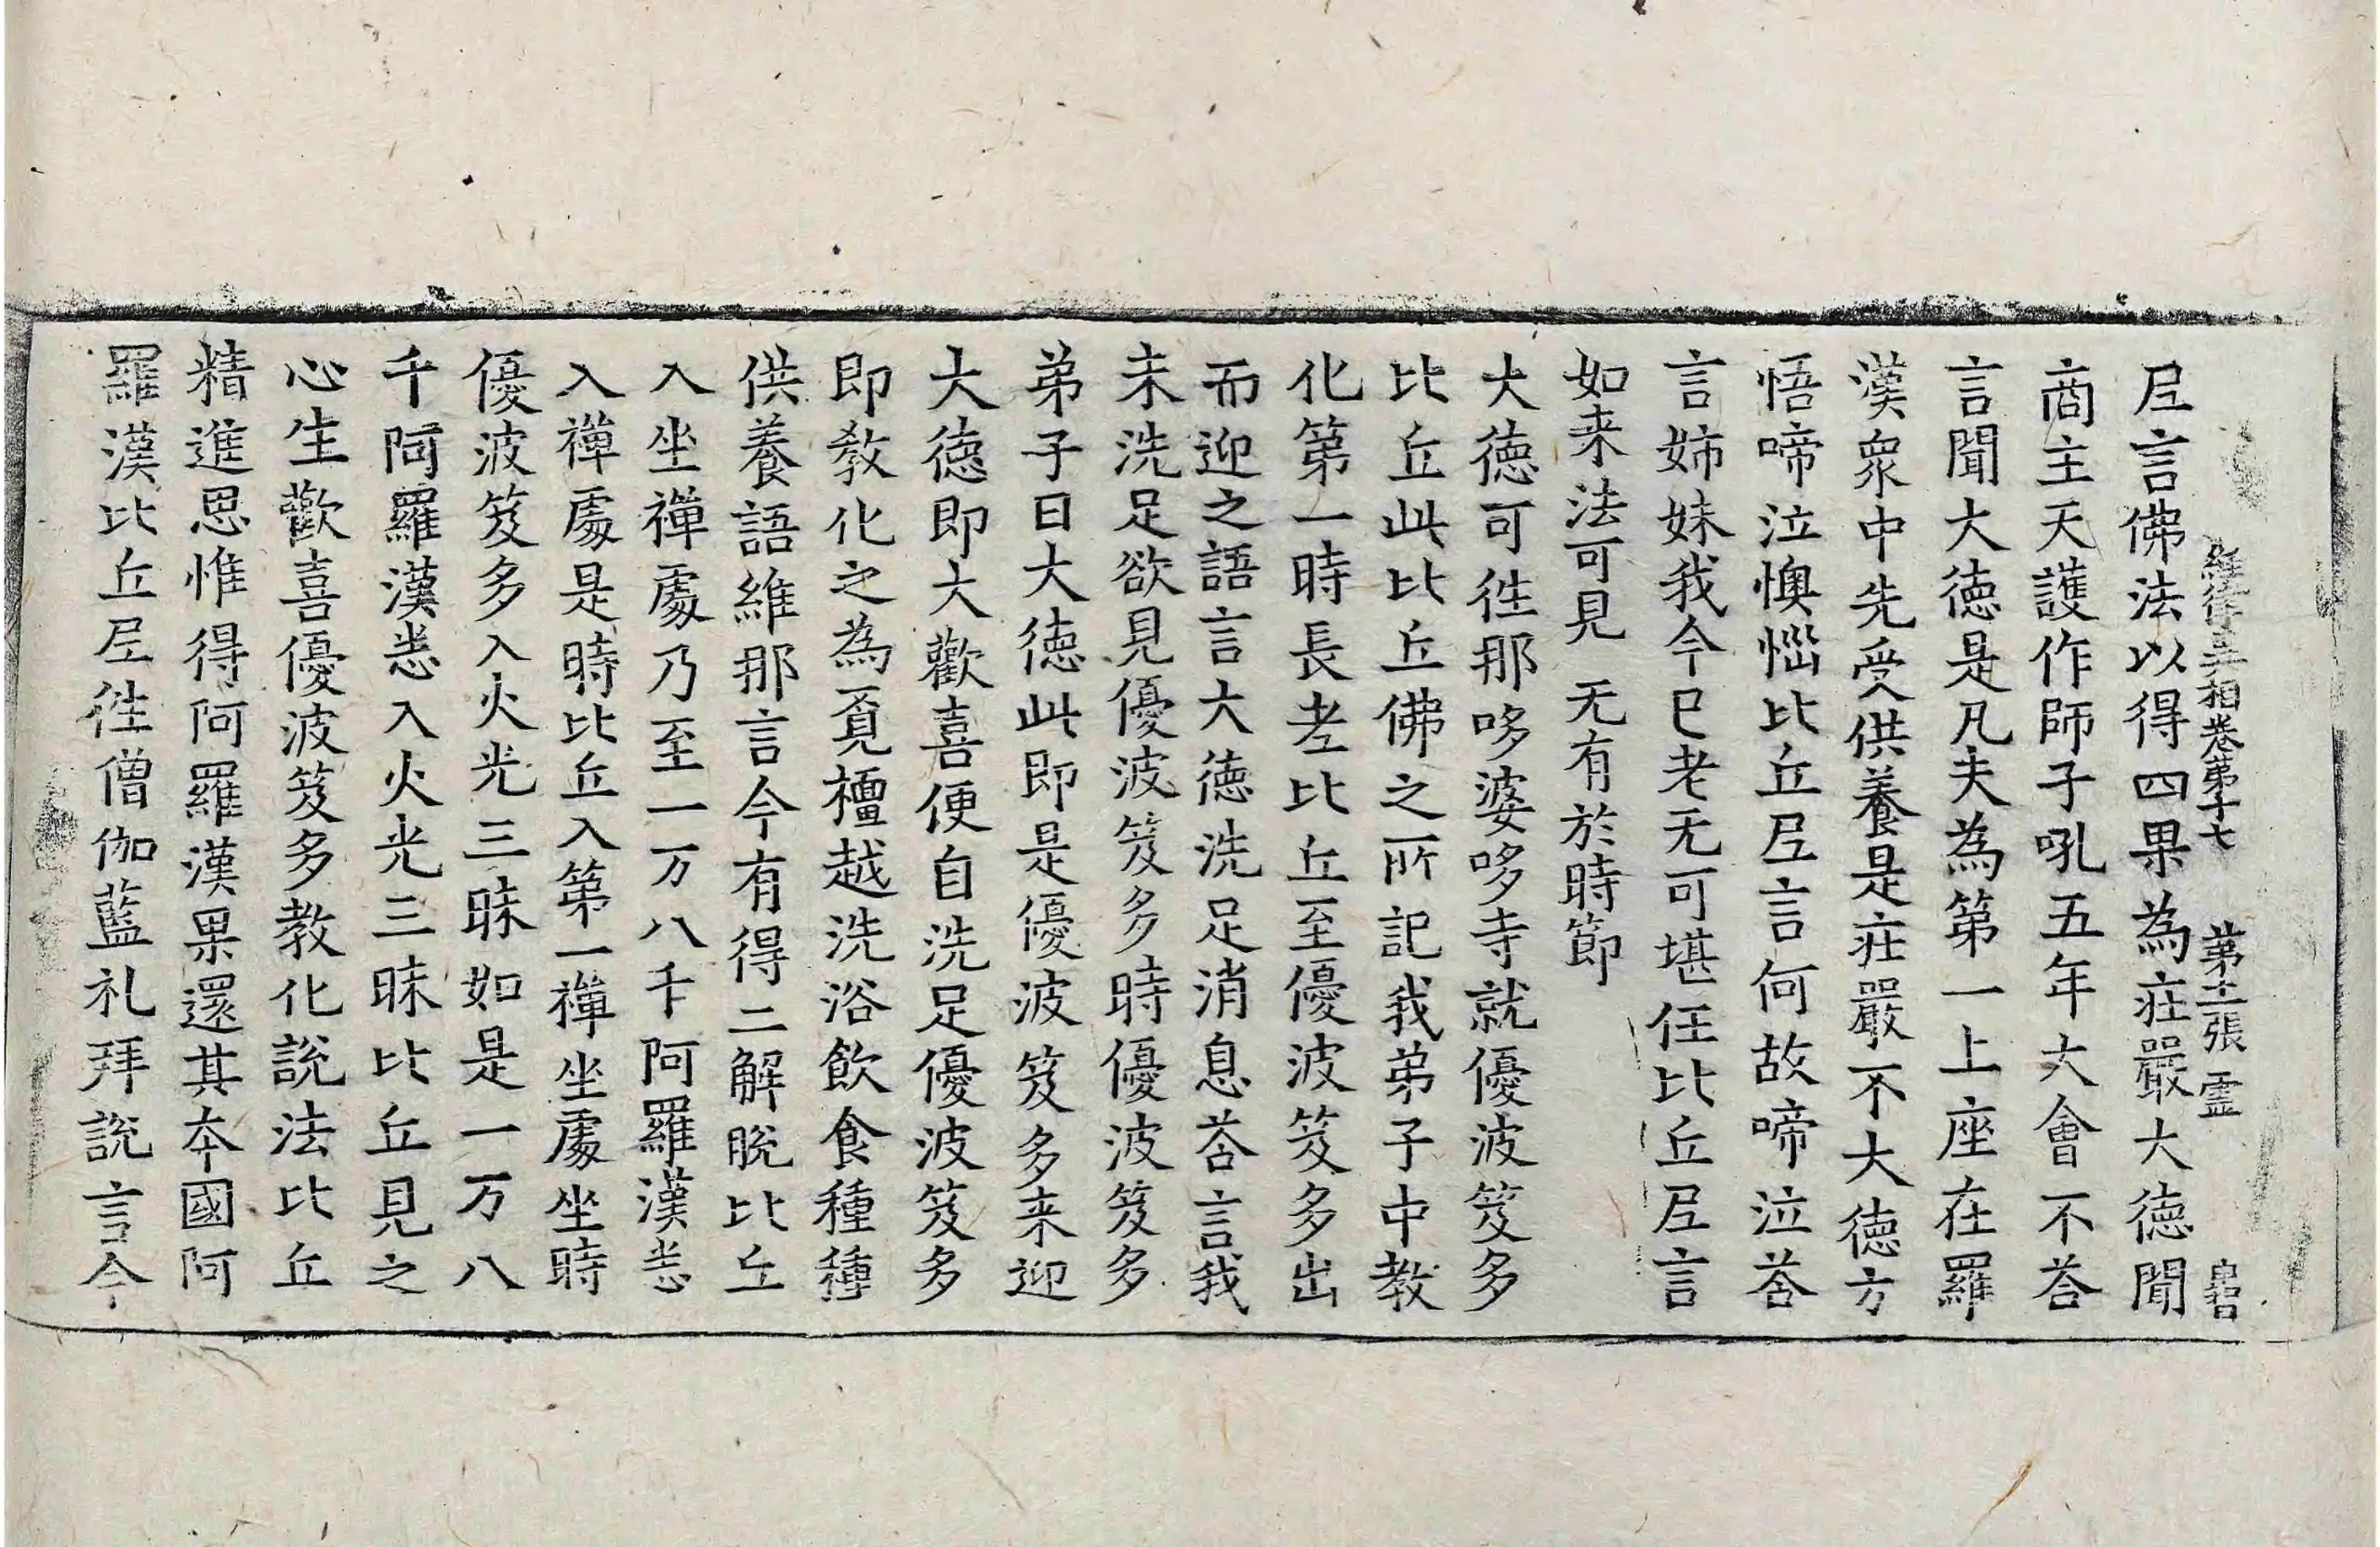 經律異相卷第十七　第十二張　靈
尼言佛法以得四果為莊嚴大德聞
商主天護作師子吼五年大會不荅
言聞大德是凡夫為第一上座在羅
漢衆中先受供養是莊嚴不大德方
悟啼泣懊惱比丘尼言何故啼泣荅
言姊妹我今已老无可堪任比丘尼言
如来法可見　无有於時節
大德可徃那哆婆哆寺就優波笈多
比丘此比丘佛之所記我弟子中教
化第一時長老比丘至優波笈多出
而迎之語言大德洗足消息荅言我
未洗足欲見優波笈多時優波笈多
弟子曰大德此即是優波笈多来迎
大德即大歡喜便自洗足優波笈多
即教化之為覓檀越洗浴飲食種種
供養語維那言今有得二解脱比丘
入坐禪處乃至一万八千阿羅漢悉
入禪處是時比丘入第一禪坐處坐時
優波笈多入火光三昧如是一万八
千阿羅漢悉入火光三昧比丘見之
心生歡喜優波笈多教化說法比丘
精進思惟得阿羅漢果還其本國阿
羅漢比丘尼徃僧伽藍礼拜說言今